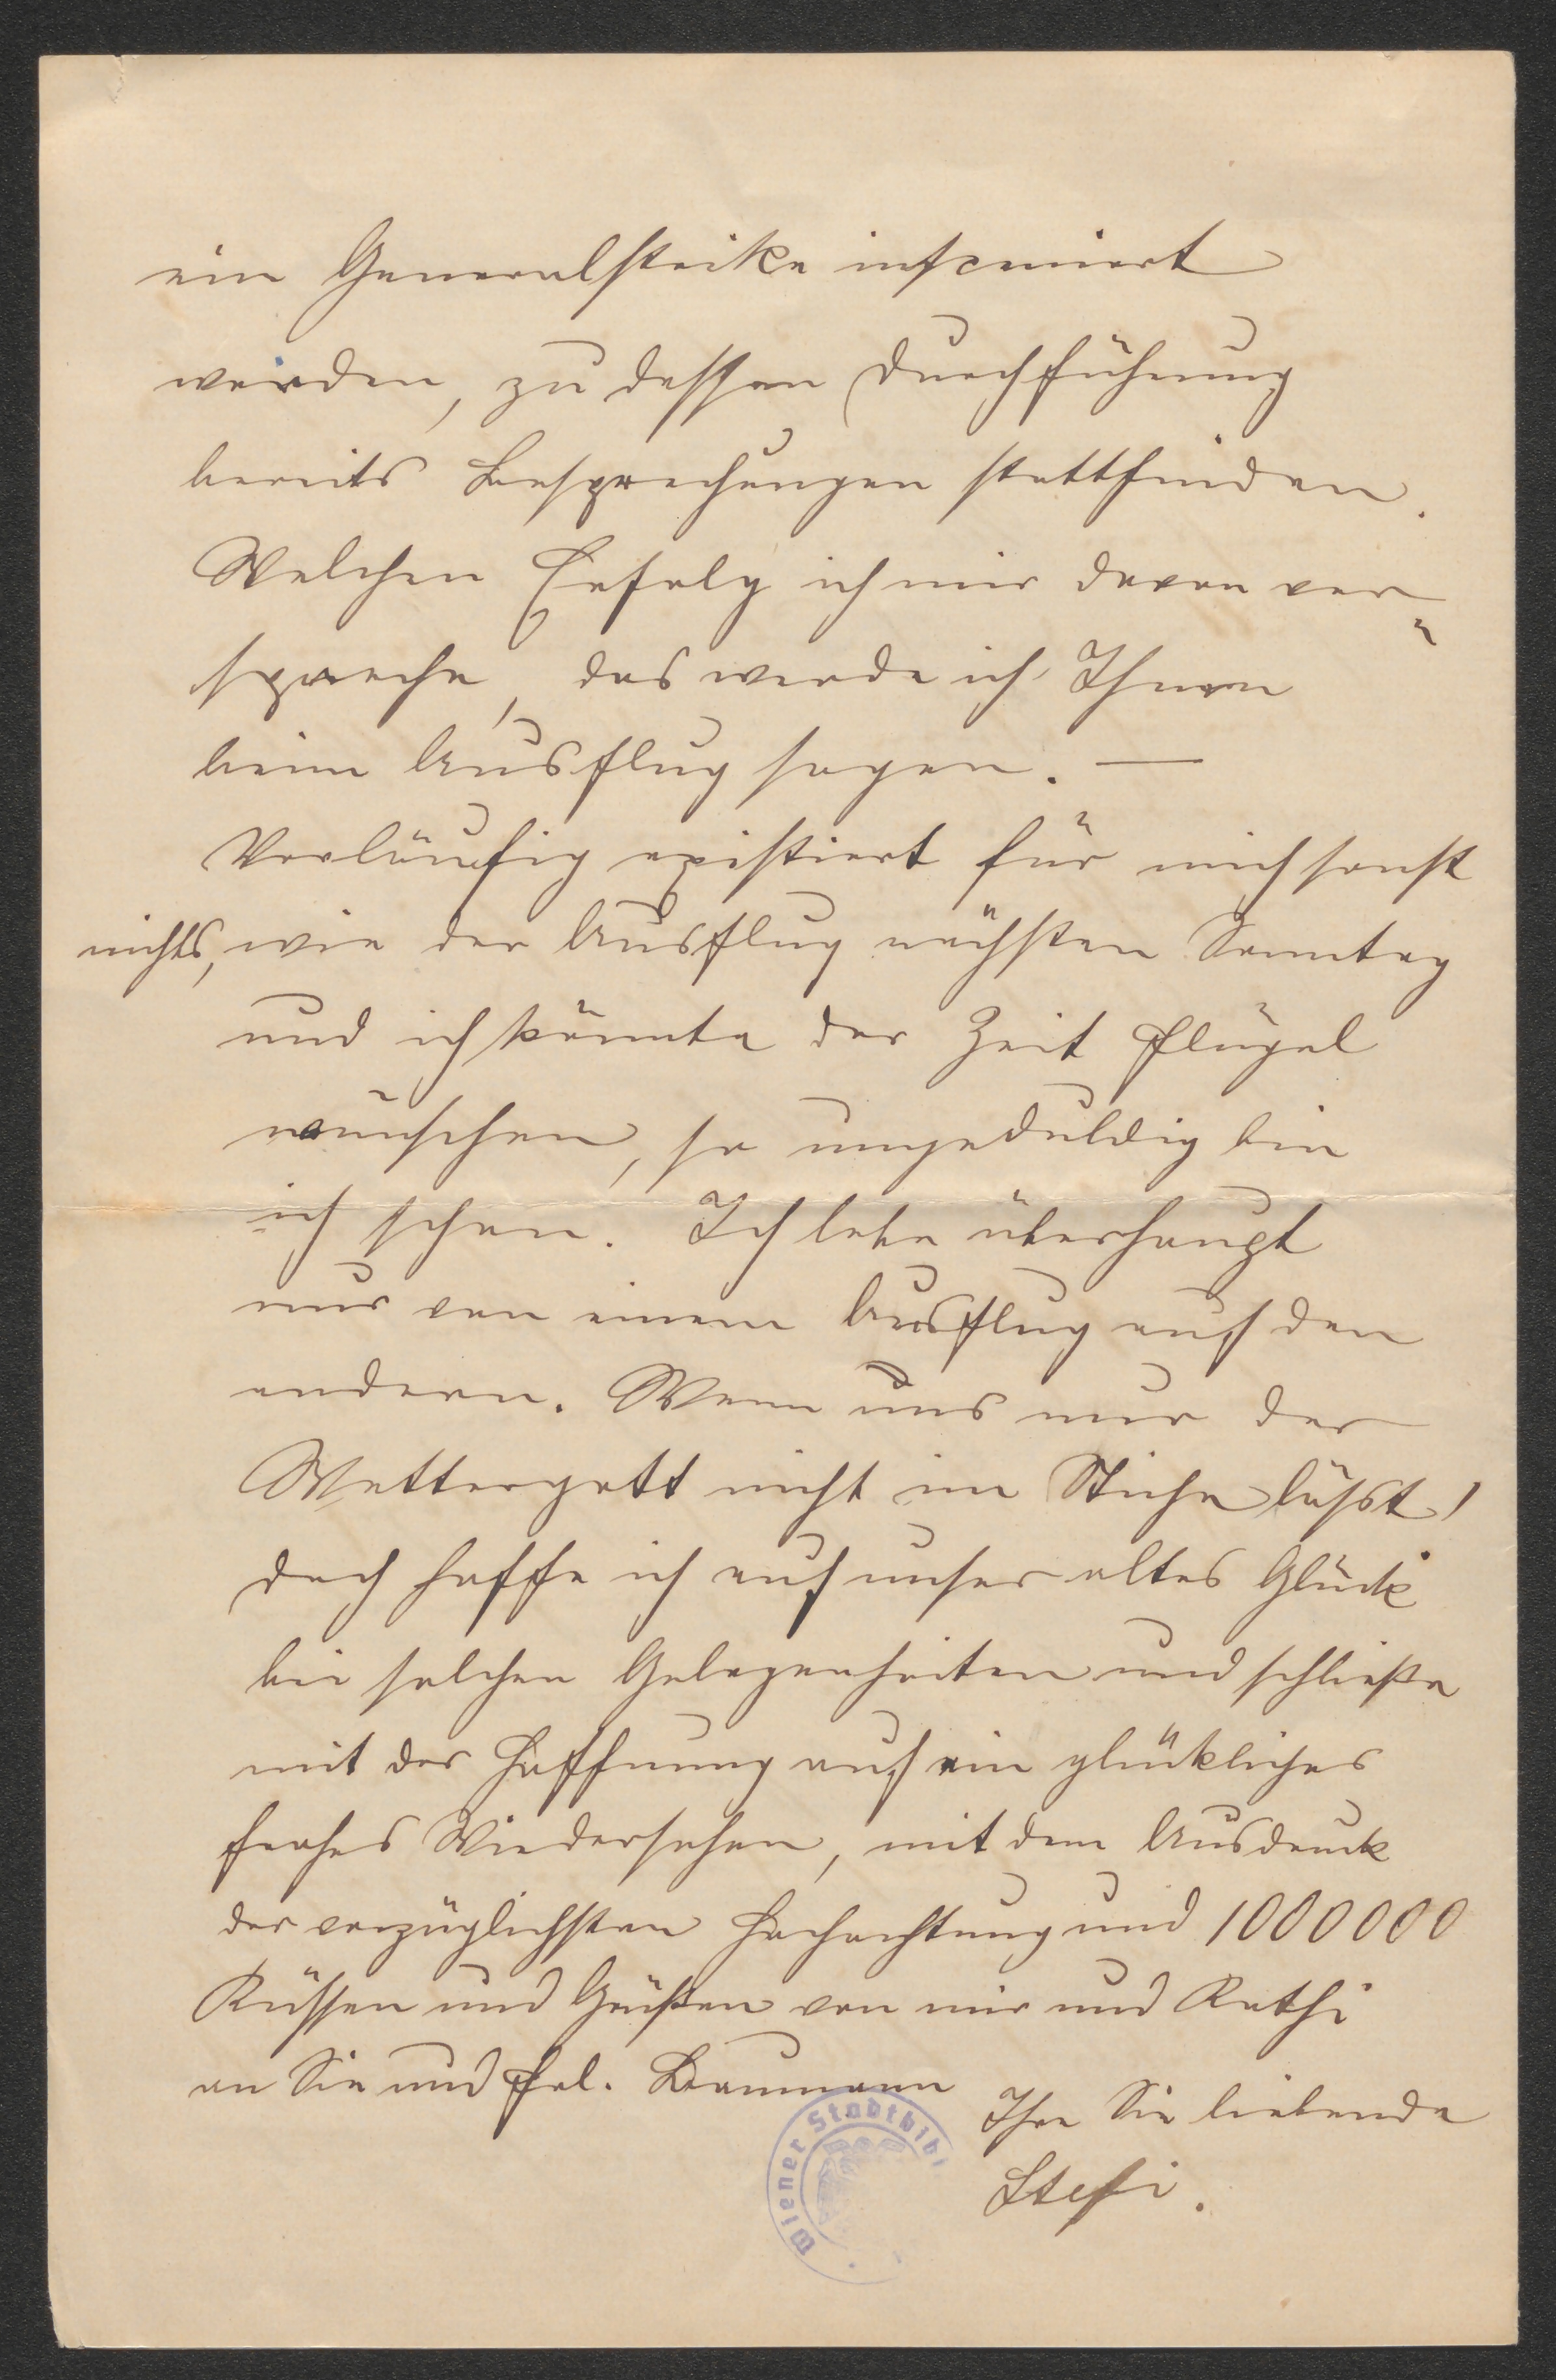 ein Generalstrike insceniert
werden, zu dessen Durchführung
bereits Besprechungen stattfinden.
Welchen Erfolg ich mir davon ver=
spreche, das werde ich Ihnen
beim Ausflug sagen. —
Vorläufig existiert für mich sonst
nichts, wie der Ausflug nächsten Sonntag
und ich könnte der Zeit Flügel
wünschen, so ungeduldig bin
ich schon. Ich lebe überhaupt
nur von einem Ausflug auf den
andern. Wenn uns nur der
Wettergott nicht im Stiche läßt,
doch hoffe ich auf unser altes Glück
bei solchen Gelegenheiten und schließe
mit der Hoffnung auf ein glükliches
frohes Wiedersehen, mit dem Ausdruck
der vorzüglichsten Hochachtung und 1000000
Küssen und Grüßen von mir und Kathi
an Sie und Frl. Baumann
Ihre Sie liebende
Stefi.
Wiener Stadtbibl